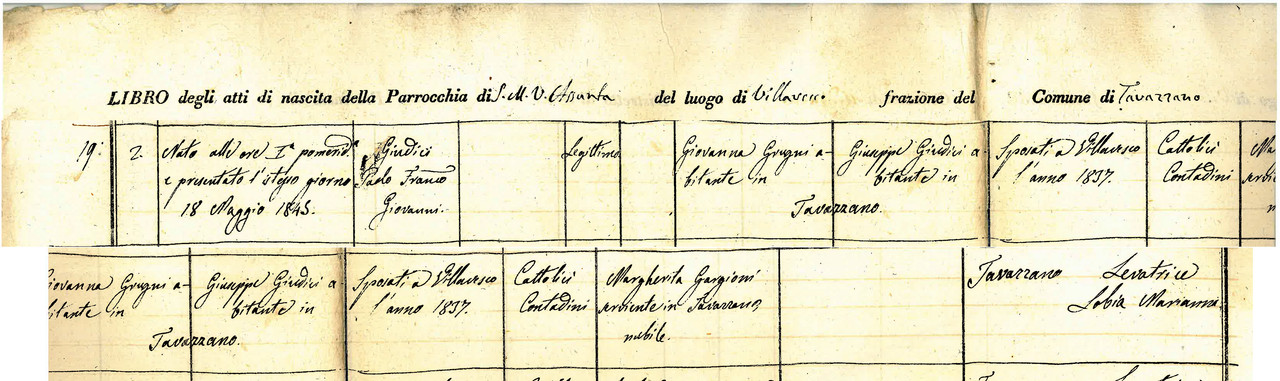 LIBRO degli atti di nascita della Parrocchia di S. M. V. Assunta del luogo di Villavesco frazione del Comune di Tavazzano
19. 2. Nato alle ore I.ª pomerid.e Giudici Legittimo Giovanna Grugni a- Giuseppe Giudici a- Sposati a Villavesco Cattolici Ma
e presentato l'istesso giorno Paolo Franco bitante in bitante in l'anno 1837. Contadini
18 Maggio 1845. Giovanni. Tavazzano.
iovanna Grugni a- Giuseppe Giudici a- Sposati a Villavesco Cattolici Margherita Gargioni Tavazzano Levatrice
bitante in bitante in l'anno 1837. Contadini serviente in Tavazzano, Lobia Marianna.
Tavazzano. nubile.